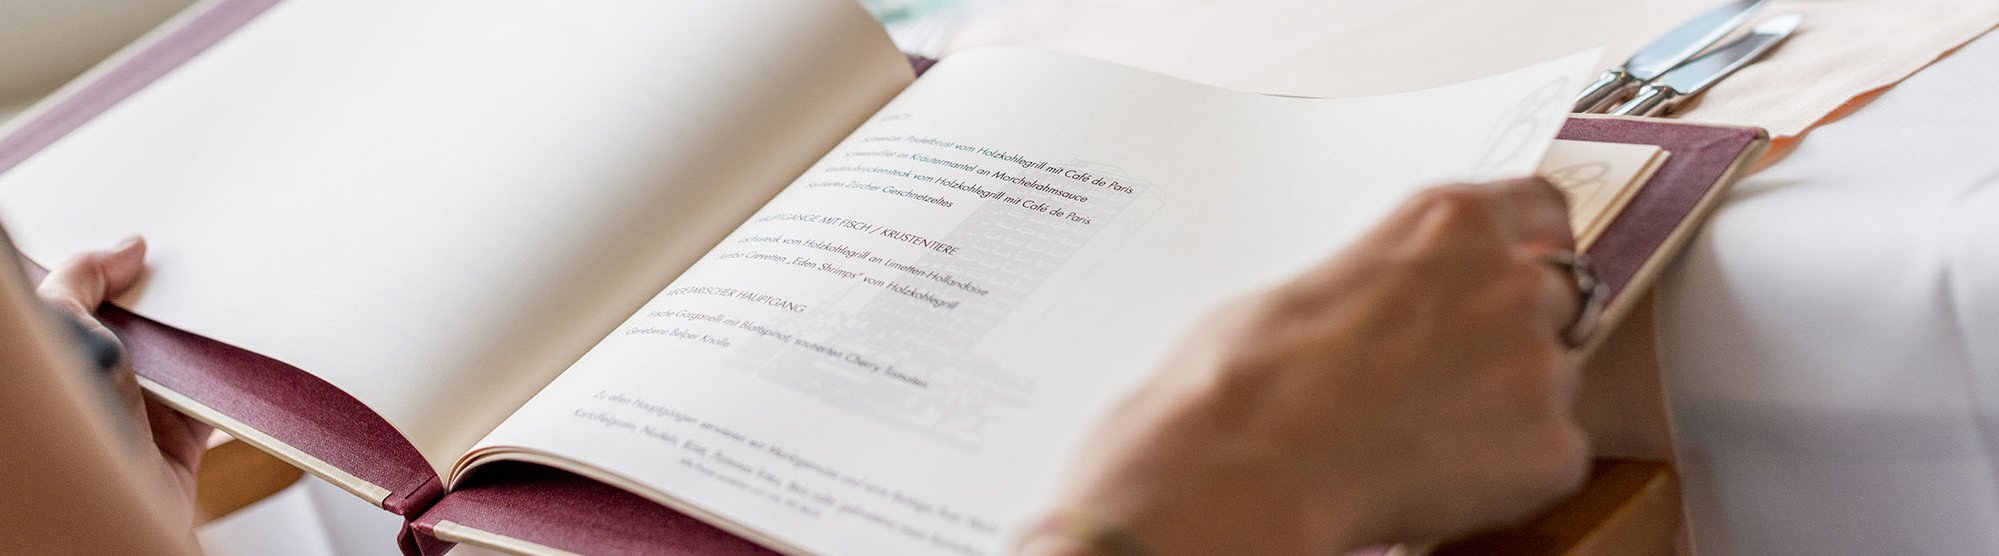 FLEISCH
Schweizer Pouletbrust vom Holzkohlegrill mit Café de Paris
Schweinsfilet im Kräutermantel an Morchelrahmsauce
Rindshohrückensteak vom Holzkohlegrill mit Café de Paris
Sautiertes Zürcher Geschnetzeltes
HAUPTGÄNGE MIT FISCH / KRUSTENTIERE
Lachssteak vom Holzkohlegrill an Limetten-Hollandaise
Jumbo Crevetten „Eden Shrimps“ vom Holzkohlegrill
VEGETARISCHER HAUPTGANG
Frische Garganelli mit Blattspinat, sautierten Cherry Tomaten
Geriebene Belper Knolle
Zu allen Hauptgängen servieren wir Marktgemüse und eine Beilage Ihrer Wahl
Kartoffelgratin, Nudeln, Reis, Pommes Frites